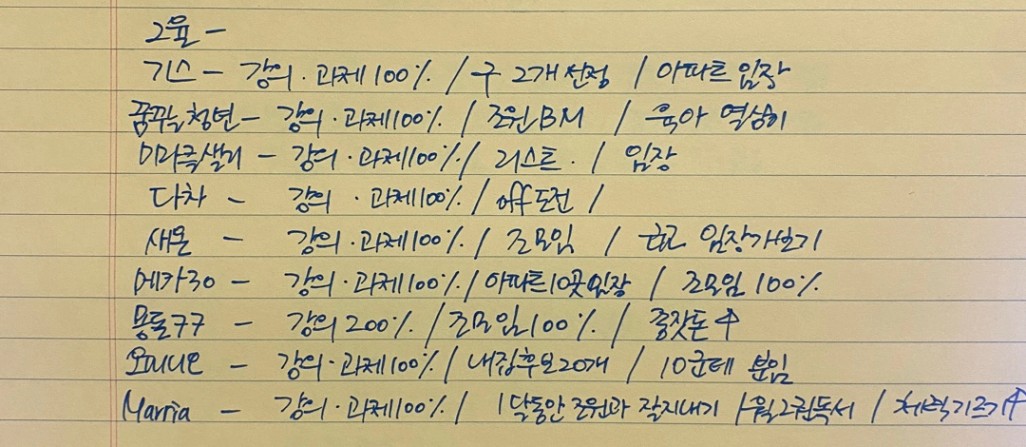 그율 -
기스 - 강의·과제100% / 구 2개 선정 / 아파트 임장
꿈꾸는청년 - 강의·과제100% / 조원BM / 육아 열심히
미라클샐리 - 강의·과제100% / 리스트. / 임장
다차 - 강의·과제100% / off도전 /
새몬 - 강의·과제100% / 조모임 / 임장가보기
메카30 - 강의·과제100% / 아파트10곳임장 / 조모임 100%
용돌77 - 강의200% / 조모임100% / 종잣돈↑
오피니언 - 강의·과제100% / 내집후보20개 / 10군데 분임
Marria - 강의·과제100% / 1달동안 조원과 잘지내기 / 월2권독서 / 체력기르기↑